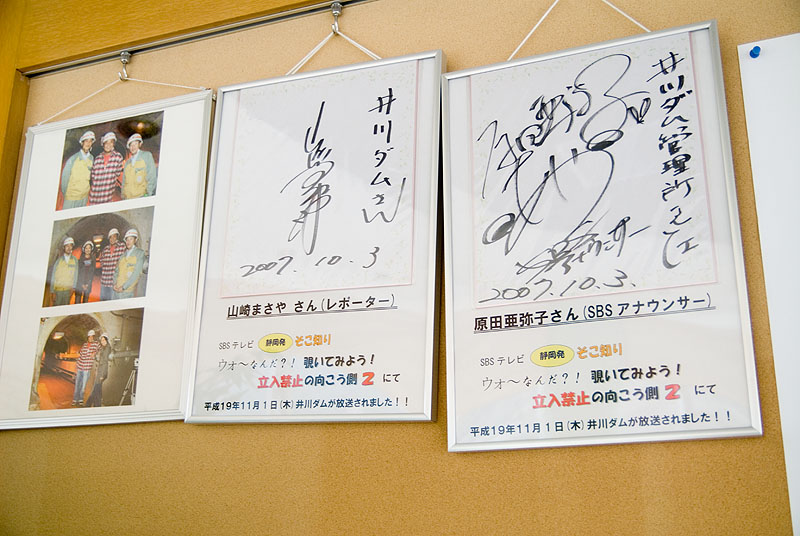 井川ダムさん
2007.10.3
山崎まさや さん(レポーター)
SBSテレビ 静岡発 そこ知り
ウォ〜なんだ?! 覗いてみよう!
立入禁止の向こう側2 にて
平成19年11月1日(木)井川ダムが放送されました!!
井川ダム管理所さん江
2007.10.3.
原田亜弥子さん(SBSアナウンサー)
SBSテレビ 静岡発 そこ知り
ウォ〜なんだ?! 覗いてみよう!
立入禁止の向こう側2 にて
平成19年11月1日(木)井川ダムが放送されました!!